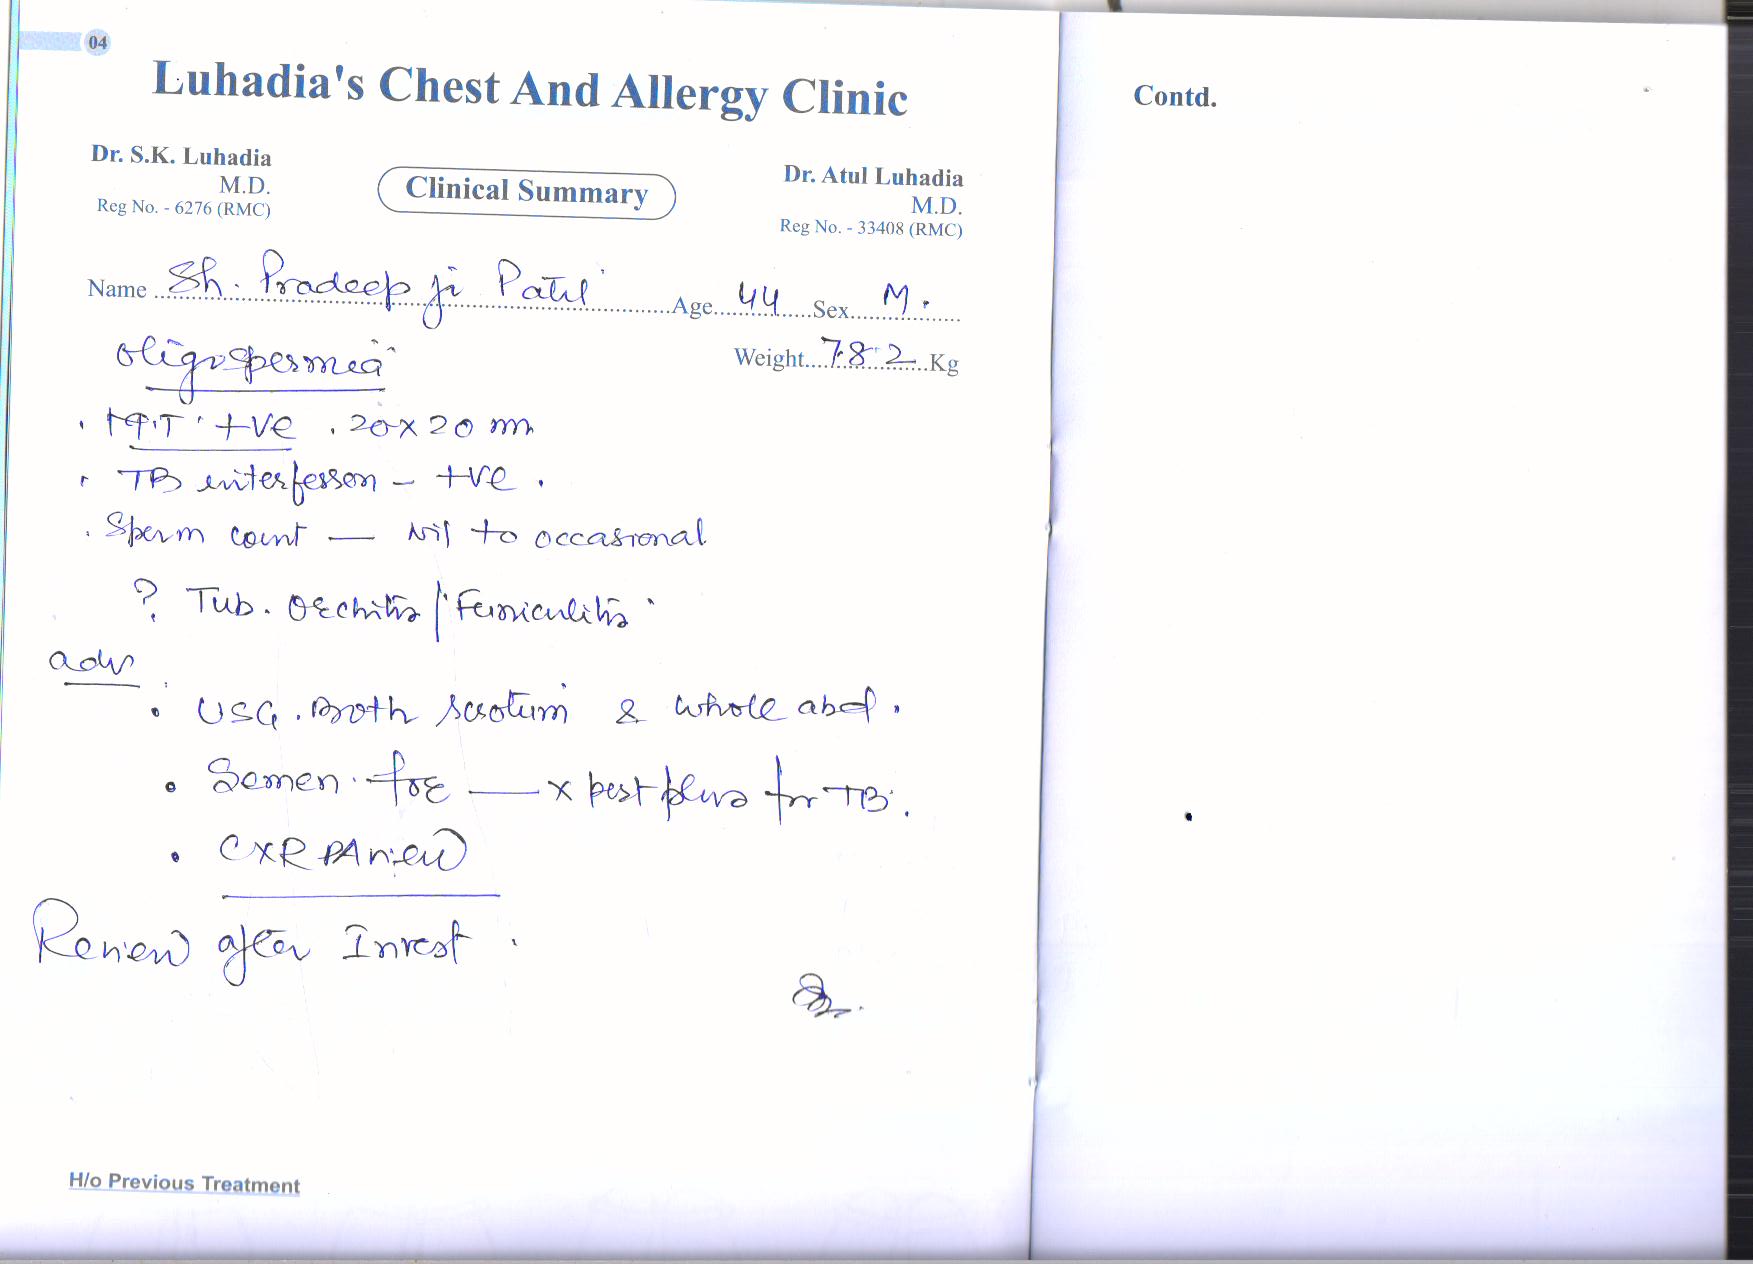 04
Luhadia's Chest And Allergy Clinic
Dr. S.K. Luhadia
M.D.
Reg No. - 6276 (RMC)
Clinical Summary
Dr. Atul Luhadia
M.D.
Reg No. - 33408 (RMC)
Name Sh. Pradeep ji Patil Age 44 Sex M.
Weight 78.2 Kg
oligospermea
+ve . 20 x 20 m
TB interferron - +ve .
Sperm count — Nil to occasional
? Tub. Orchitis / Funiculitis
adv
USG . Both scrotum & whole abd .
Semen for — x pert plus for TB .
CXR PA view
Review after Invest .
H/o Previous Treatment
Contd.